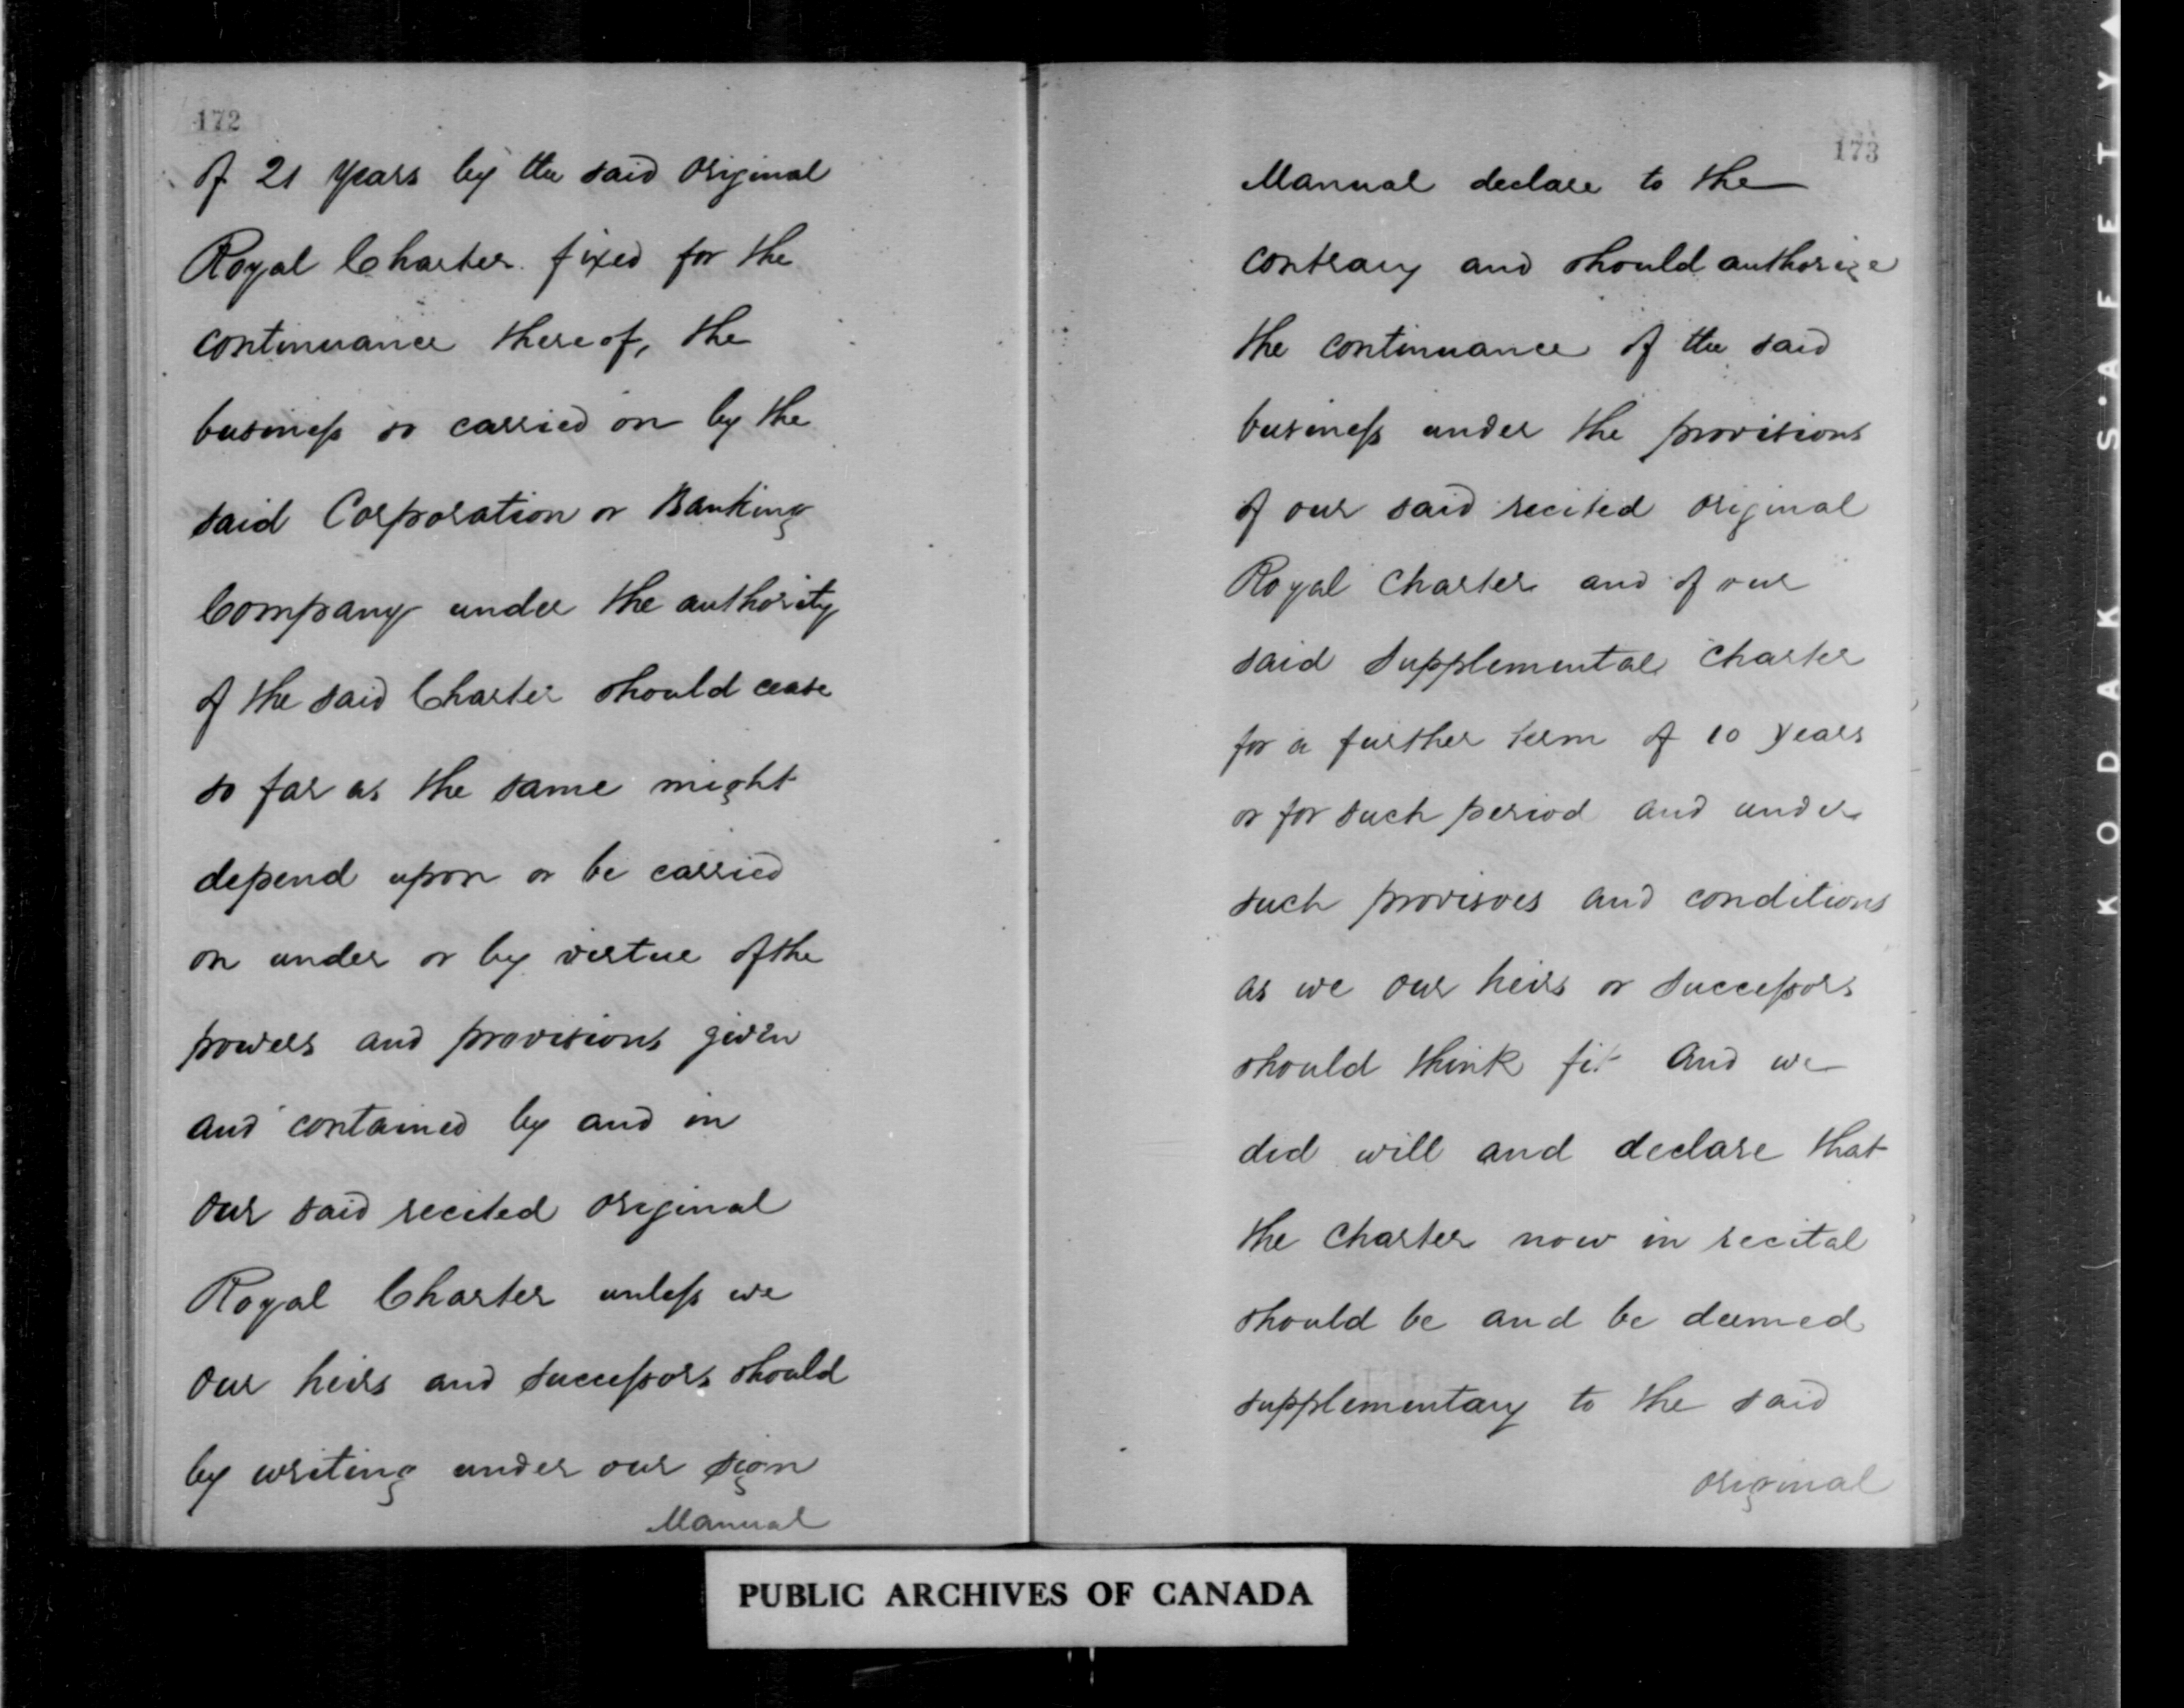 172
of 21 years by the said original
Royal Charter fixed for the
continuance thereof, the
business so carried on by the
said Corporation or Banking
Company under the authority
of the said Charter should cease
so far as the same might
depend upon or be carried
on under or by virtue of the
powers and provisions given
and contained by and in
our said recited original
Royal Charter unless we
our heirs and successors should
by writing under our sign
Manual
173
Manual declare to the
contrary and should authorize
the continuance of the said
business under the provisions
of our said recited original
Royal Charter and of our
said supplemental Charter
for a further term of 10 years
or for such period and under
such provisoes and conditions
as we our heirs or successors
should think fit And we
did will and declare that
the Charter now in recital
should be and be deemed
supplementary to the said
original
PUBLIC ARCHIVES OF CANADA
KODAK S·AFETY